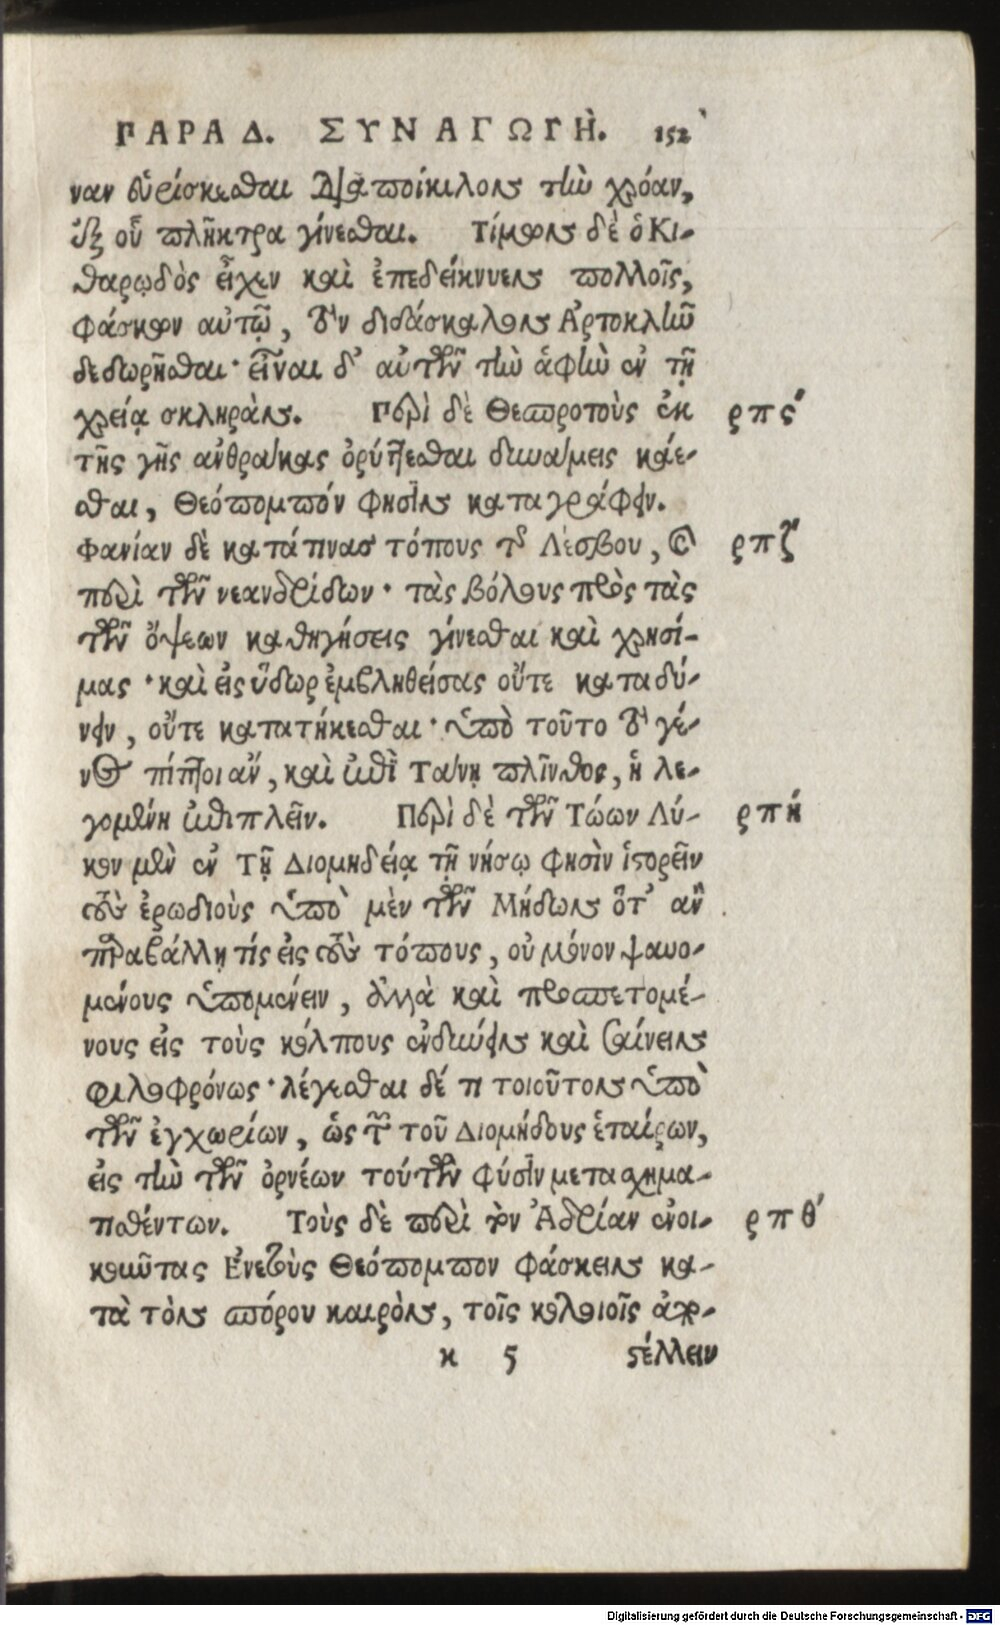 ΠΑΡΑΔ. ΣΥΝΑΓΩΓῊ. 152
ναν εὑρίσκεσθαι διαποίκιλον τὴν χρόαν,
ἐξ οὗ πλῆκτρα γίνεσθαι. Τίμαον δὲ ὁ Κι-
θαρῳδὸς εἶχεν καὶ ἐπεδείκνυεν πολλοῖς,
φάσκων αὐτῷ, τὸν διδάσκαλον Ἀρτοκλῆν
δεδωρῆσθαι· εἶναι δ' αὐτῶν τὴν ἁφὴν ἐν τῇ
χρείᾳ σκληράν. Περὶ δὲ Θεσπροτοὺς ἐκ ρπϛʹ
τῆς γῆς ἄνθρακας ὀρύττεσθαι δυναμεις κάε-
σθαι, Θεόπομπόν φησὶν καταγράφειν.
Φανίαν δὲ κατά τινας τόπους τῆς Λέσβου, καὶ ρπζʹ
περὶ τῶν νεανδρίδων· τὰς βόλους πρὸς τὰς
τῶν ὄψεων καθηγήσεις γίνεσθαι καὶ χρησί-
μας· καὶ εἰς ὕδωρ ἐμβληθείσας οὔτε καταδύ-
νειν, οὔτε κατατήκεσθαι· ὑπὸ τοῦτο τὸ γέ-
νος πίπτοι ἄν, καὶ ἐπὶ Τάνῃ πλίνθος, ἡ λε-
γομένη ἐπιπλεῖν. Περὶ δὲ τῶν Τώων Λύ- ρπή
κον μὲν ἐν Τῇ Διομηδείᾳ τῇ νήσῳ φησὶν ἱστορεῖν
τοὺς ἐρωδιοὺς ὑπὸ μὲν τῶν Μήδων ὅτ' ἂν
παραβάλλῃ τίς εἰς τοὺς τόπους, οὐ μόνον ψαυο-
μένους ὑπομένειν, ἀλλὰ καὶ προσπετομέ-
νους εἰς τοὺς κόλπους ἐνδύνειν καὶ σαίνειν
φιλοφρόνως· λέγεσθαι δέ τι τοιοῦτον ὑπὸ
τῶν ἐγχωρίων, ὡς τῶν τοῦ Διομήδους ἑταίρων,
εἰς τὴν τῶν ὀρνέων τούτων φύσιν μετασχημα-
τισθέντων. Τοὺς δὲ περὶ τὸν Ἀδρίαν ἐνοι- ρπθʹ
κοῦντας Ἐνετοὺς Θεόπομπον φάσκειν κα-
τὰ τὸν σπόρου καιρὸν, τοῖς κολοιοῖς ἀπο-
κ 5 στέλλειν
Digitalisierung gefördert durch die Deutsche Forschungsgemeinschaft - DFG